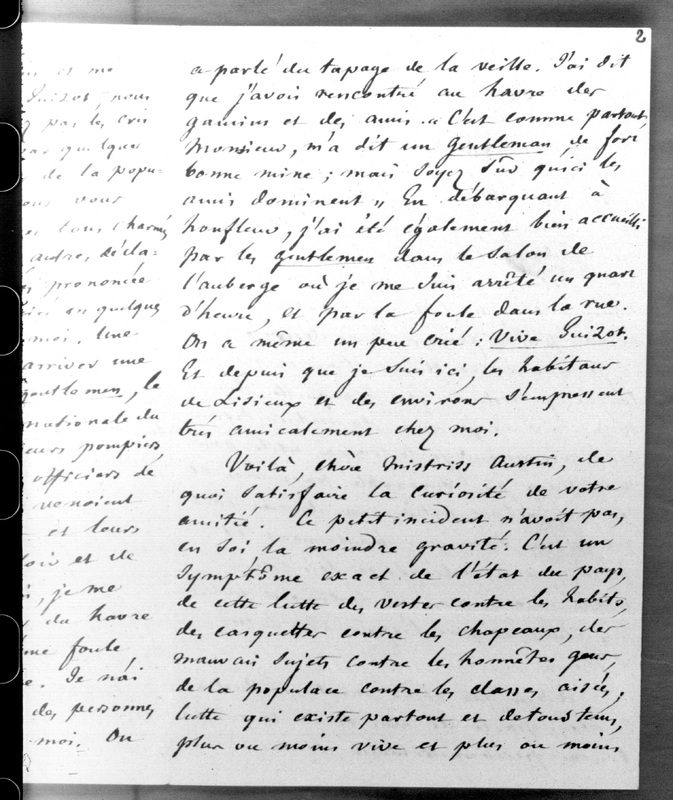 is et me
Guizot, nous
pas les cris
par quelques
de la popu-
ous vous
et tous charmés
autres, décla-
prononcée
ici en quelques
moi. Une
arriver une
gentlemen, le
nationale du
leurs pompiers
officiers de
venoient
et leurs
loix et de
, je me
du havre
me foule
e. Je n'ai
des personnes
moi. On
2
a parlé du tapage de la veille. J'ai dit
que j'avois rencontré au havre des
gamins et des amis. « C'est comme partout,
Monsieur, m'a dit un gentleman de fort
bonne mine ; mais soyez sûr qu'ici les
amis dominent » En débarquant à
honfleur, j'ai été également bien accueilli
par les gentlemen dans le salon de
l'auberge où je me suis arrêté un quart
d'heure, et par la foule dans la rue.
On a même un peu crié : Vive Guizot.
Et depuis que je suis ici, les habitans
de Lisieux et des environs s'empressent
très amicalement chez moi.
Voilà, chère Mistriss Austin, de
quoi satisfaire la curiosité de votre
amitié. Ce petit incident n'avoit pas,
en soi la moindre gravité. C'est un
symptôme exact de l'état du pays,
de cette lutte des vestes contre les habits,
des casquettes contre les chapeaux, des
mauvais sujets contre les honnêtes gens,
de la populace contre les classes aisées,
lutte qui existe partout et de tous tems,
plus ou moins vive et plus ou moins